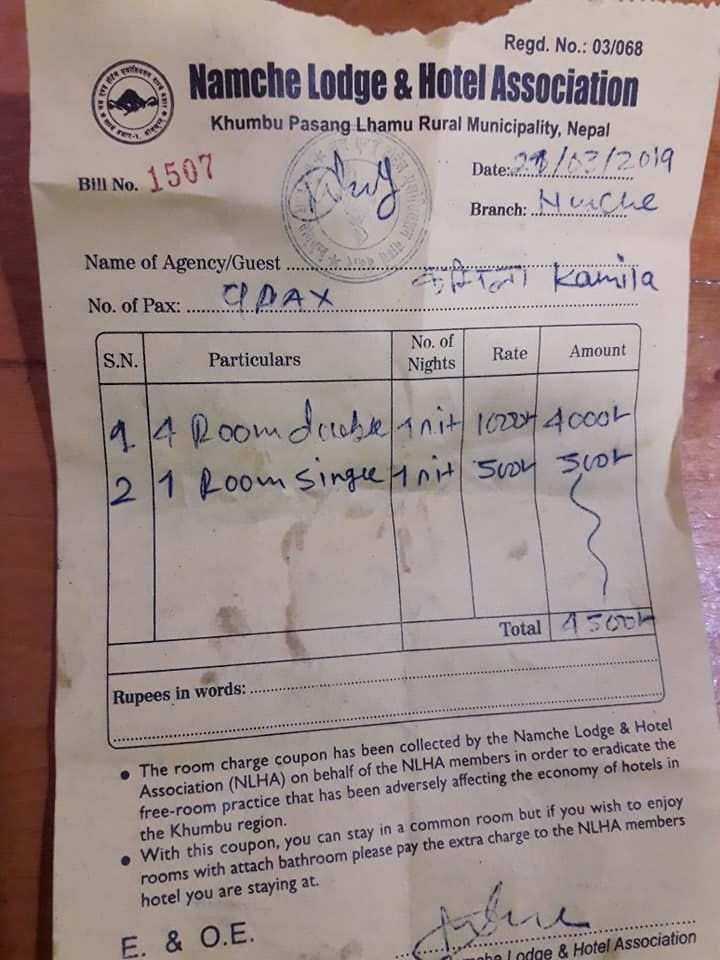 Regd. No.: 03/068
Namche Lodge & Hotel Association
Khumbu Pasang Lhamu Rural Municipality, Nepal
Bill No. 1507
Date: 28/03/2019
Branch: Namche
Name of Agency/Guest कमिला Kamila
No. of Pax: 9 PAX
S.N. Particulars No. of Nights Rate Amount
1 4 Room double 1 nit 1000/- 4000/-
2 1 Room single 1 nit 500/- 500/-
Total 4500/-
Rupees in words:
• The room charge coupon has been collected by the Namche Lodge & Hotel
Association (NLHA) on behalf of the NLHA members in order to eradicate the
free-room practice that has been adversely affecting the economy of hotels in
the Khumbu region.
• With this coupon, you can stay in a common room but if you wish to enjoy
rooms with attach bathroom please pay the extra charge to the NLHA members
hotel you are staying at.
E. & O.E.
Namche Lodge & Hotel Association